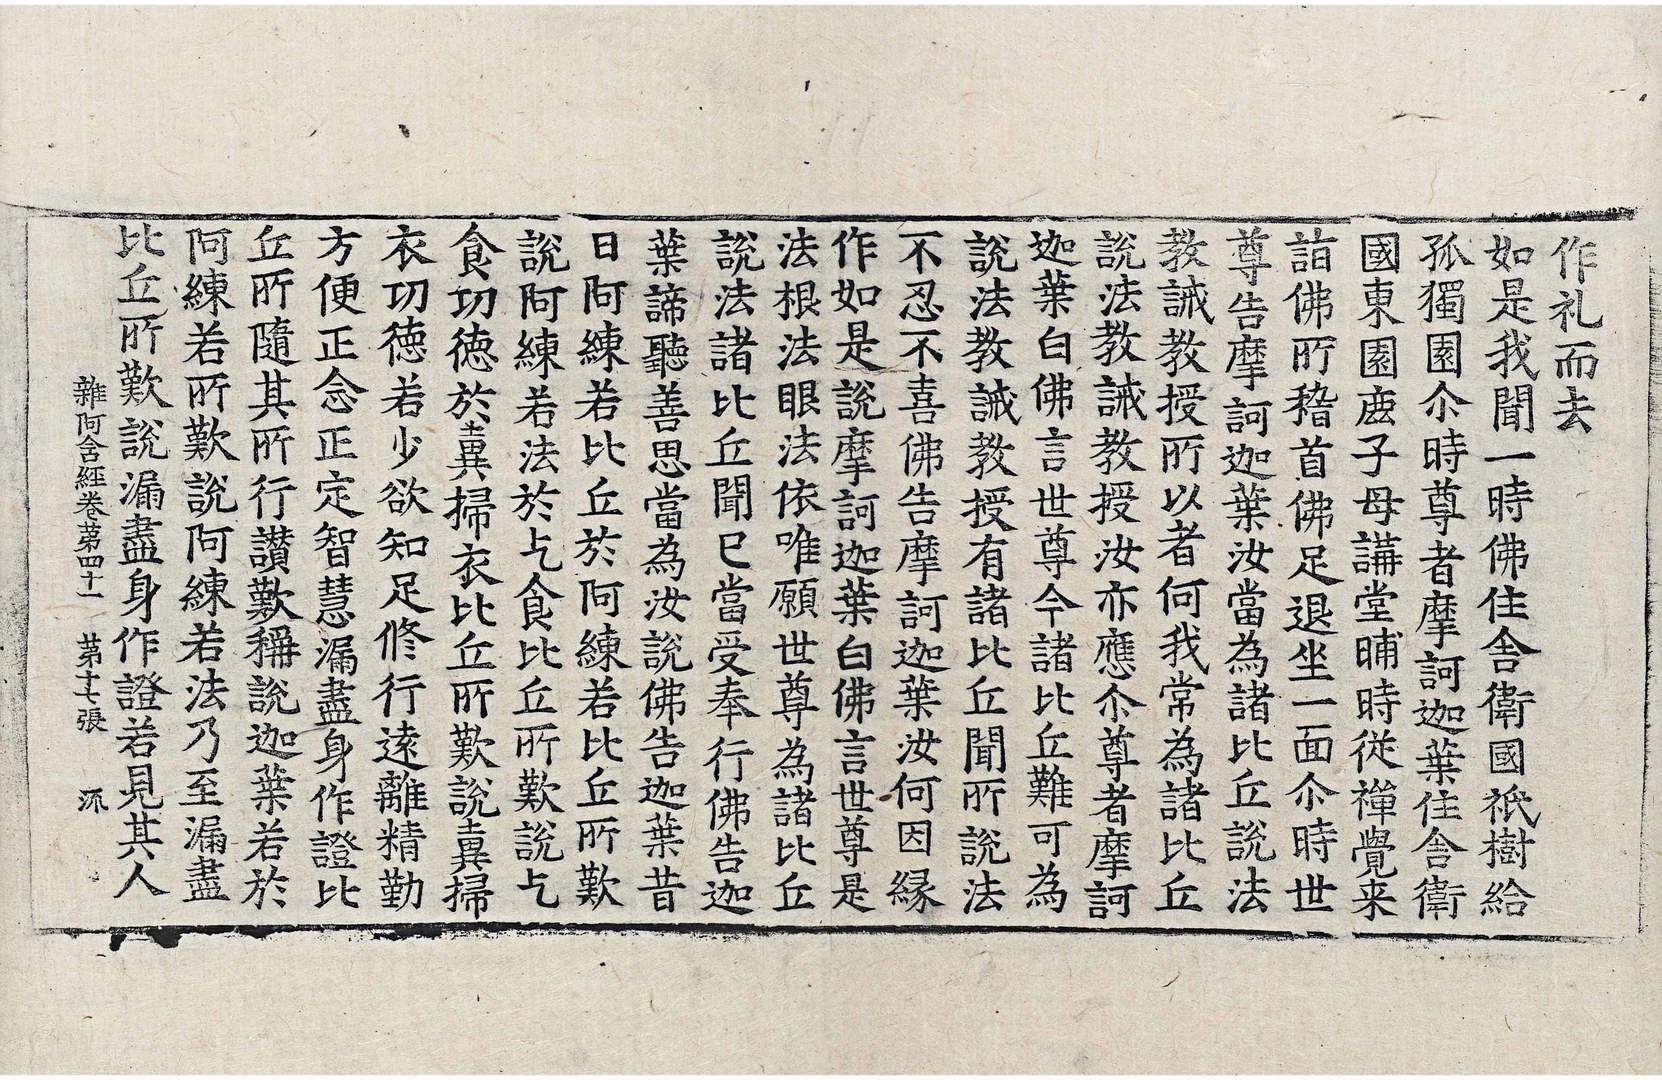 作礼而去
如是我聞一時佛住舎衛國祇樹給
孤獨園尒時尊者摩訶迦葉住舎衛
國東園鹿子母講堂晡時從禪覺来
詣佛所稽首佛足退坐一面尒時世
尊告摩訶迦葉汝當為諸比丘說法
教誡教授所以者何我常為諸比丘
說法教誡教授汝亦應尒尊者摩訶
迦葉白佛言世尊今諸比丘難可為
說法教誡教授有諸比丘聞所說法
不忍不喜佛告摩訶迦葉汝何因縁
作如是說摩訶迦葉白佛言世尊是
法根法眼法依唯願世尊為諸比丘
說法諸比丘聞已當受奉行佛告迦
葉諦聽善思當為汝說佛告迦葉昔
日阿練若比丘於阿練若比丘所歎
說阿練若法於乞食比丘所歎說乞
食功德於糞掃衣比丘所歎說糞掃
衣功德若少欲知足修行遠離精勤
方便正念正定智慧漏盡身作證比
丘所隨其所行讃歎稱說迦葉若於
阿練若所歎說阿練若法乃至漏盡
比丘所歎說漏盡身作證若見其人
雜阿含經卷苐四十一 苐十七張 流